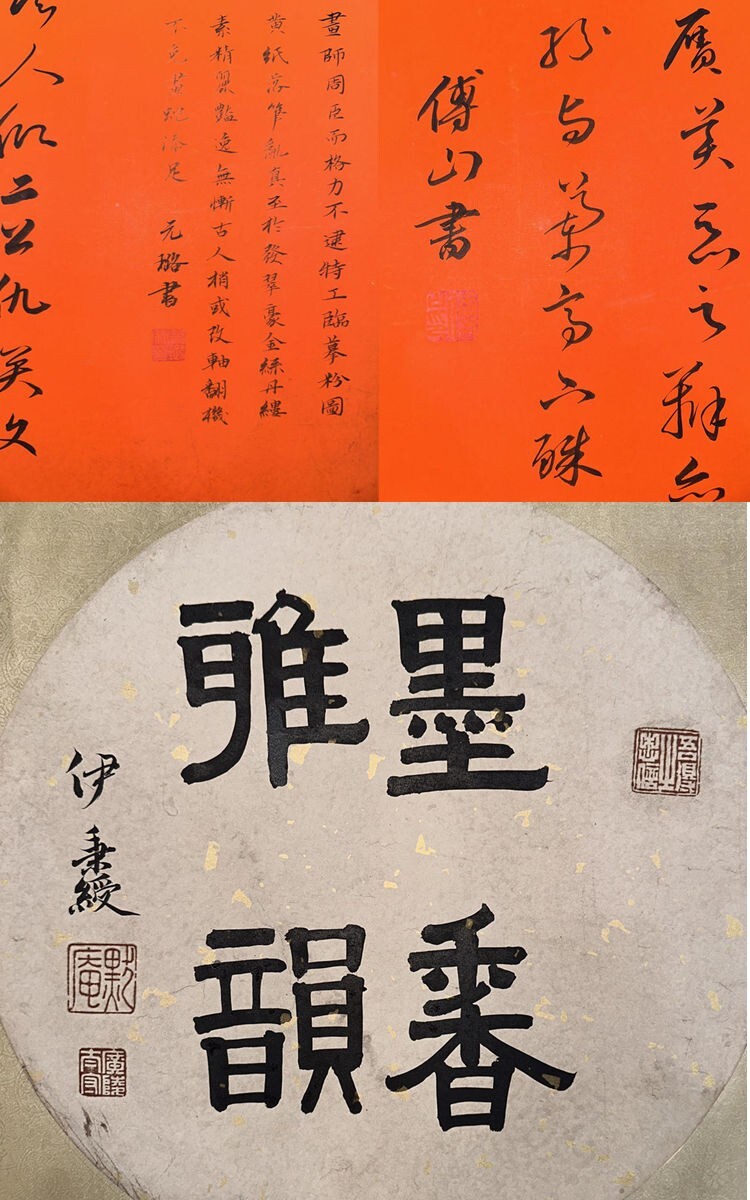 贗美惡之辨
傅山書
畫師周臣而格力不逮特工臨摹粉圖
黄紙落筆亂真至於發翠豪金絲丹縷
素精麗豔逸無慚古人稍或改軸翻機
不免畫蛇添足
元璐書
人似二公仇英文
墨香
雅韻
伊秉綬
默庵
廣陵太守